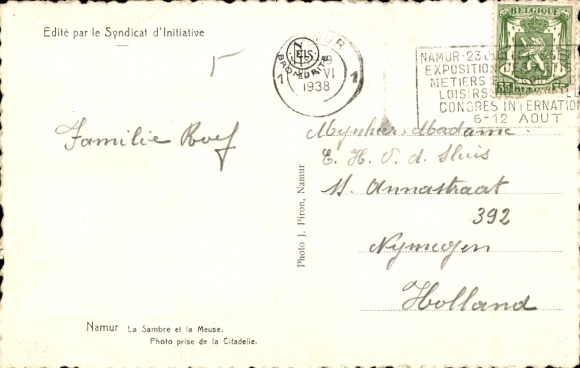 Edité par le Syndicat d'Initiative
VI
1938
1 1
NAMUR-23
EXPOSITION
METIERS
LOISIRS
CONGRES INTERNATION
6-12 AOUT
BELGIQUE
35 35
Familie
Mynheer-Madame
E. H. V. d. Sluis
St. Annastraat
392
Nymegen
Holland
Photo J. Piron, Namur
Namur La Sambre et la Meuse.
Photo prise de la Citadelle.